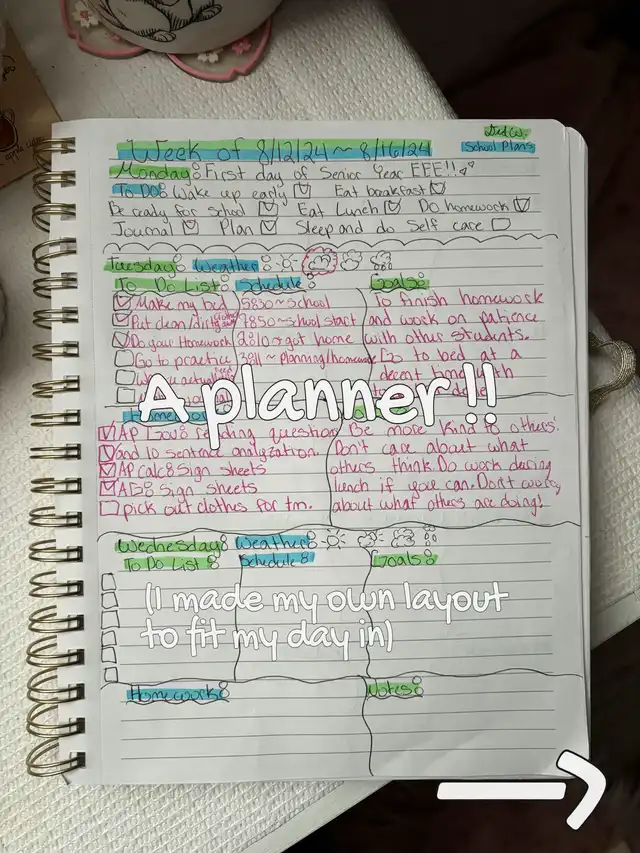 Week of 8/12/24 ~ 8/16/24
School Plans
Monday: First day of Senior Year EEE!!
To Do: Wake up early Eat breakfast
Be ready for school Eat Lunch Do homework
Journal Plan Sleep and do Self care
Tuesday: Weather:
To Do List: Schedule: Goals:
Make my bed
Put clean/dirty
Do your Homework
Go to practice
school
school start
got home
planning/homework
To finish homework
and work on patience
with other students.
Go to bed at a
decent time
A planner!!
AP Gov: reading question
and 10 sentence analyzation.
AP calc: Sign sheets
Sign sheets
pick out clothes for tm.
Be more kind to others!
Don't care about what
others think. Do work during
lunch if you can. Don't worry
about what others are doing!
Wednesday: Weather:
To Do List: Schedule: Goals:
(I made my own layout
to fit my day in)
Homework: Notes: